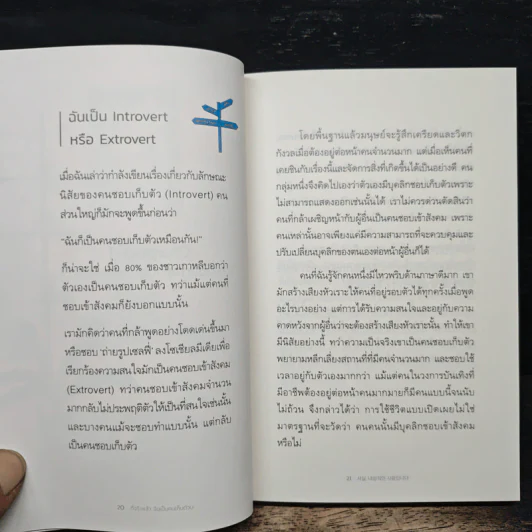 ฉันเป็น Introvert
หรือ Extrovert
เมื่อฉันเล่าว่ากำลังเขียนเรื่องเกี่ยวกับลักษณะ
นิสัยของคนชอบเก็บตัว (Introvert) คน
ส่วนใหญ่ก็มักจะพูดขึ้นก่อนว่า
“ฉันก็เป็นคนชอบเก็บตัวเหมือนกัน!”
ก็น่าจะใช่ เมื่อ 80% ของชาวเกาหลีบอกว่า
ตัวเองเป็นคนชอบเก็บตัว ทว่าแม้แต่คนที่
ชอบเข้าสังคมก็ยังบอกแบบนั้น
เรามักคิดว่าคนที่กล้าพูดอย่างโดดเด่นขึ้นมา
หรือชอบ ‘ถ่ายรูปเซลฟี่’ ลงโซเชียลมีเดียเพื่อ
เรียกร้องความสนใจมักเป็นคนชอบเข้าสังคม
(Extrovert) ทว่าคนชอบเข้าสังคมจำนวน
มากกลับไม่ประพฤติตัวให้เป็นที่สนใจเช่นนั้น
และบางคนแม้จะชอบทำแบบนั้น แต่กลับ
เป็นคนชอบเก็บตัว
20
โดยพื้นฐานแล้วมนุษย์จะรู้สึกเครียดและวิตก
กังวลเมื่อต้องอยู่ต่อหน้าคนจำนวนมาก แต่เมื่อเห็นคนที่
เคยชินกับเรื่องนี้และจัดการสิ่งที่เกิดขึ้นได้เป็นอย่างดี คน
กลุ่มหนึ่งจึงคิดไปเองว่าตัวเองมีบุคลิกชอบเก็บตัวเพราะ
ไม่สามารถแสดงออกเช่นนั้นได้ เราไม่ควรด่วนตัดสินว่า
คนที่กล้าเผชิญหน้ากับผู้อื่นเป็นคนชอบเข้าสังคม เพราะ
คนเหล่านั้นอาจเพียงแค่มีความสามารถที่จะควบคุมและ
ปรับเปลี่ยนบุคลิกของตนเองต่อหน้าผู้อื่นก็ได้
คนที่ฉันรู้จักคนหนึ่งมีไหวพริบด้านภาษาดีมาก เขา
มักสร้างเสียงหัวเราะให้คนที่อยู่รอบตัวได้ทุกครั้งเมื่อพูด
อะไรบางอย่าง แต่การได้รับความสนใจและอยู่กับความ
คาดหวังจากผู้อื่นว่าจะต้องสร้างเสียงหัวเราะนั้น ทำให้เขา
มีนิสัยอย่างนี้ ทว่าความเป็นจริงเขาเป็นคนชอบเก็บตัว
พยายามหลีกเลี่ยงสถานที่ที่มีคนจำนวนมาก และชอบใช้
เวลาอยู่กับตัวเองมากกว่า แม้แต่คนในวงการบันเทิงที่
มีอาชีพต้องอยู่ต่อหน้าคนมากมายก็มีคนแบบนี้จนนับ
ไม่ถ้วน จึงกล่าวได้ว่า การใช้ชีวิตแบบเปิดเผยไม่ใช่
มาตรฐานที่จะวัดว่า คนคนนั้นมีบุคลิกชอบเข้าสังคม
หรือไม่
21